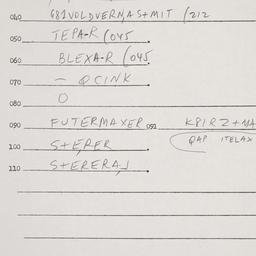 040 681VOLDVERN,A S+MIT (212
050 TEPA-R (045
060 BLEXA-R (045
070 - QCINK
080 O
090 FUTERMAXER 091 KPIRZ+MA
100 S+ERER QAP ITELAX
110 S+ERERAJ